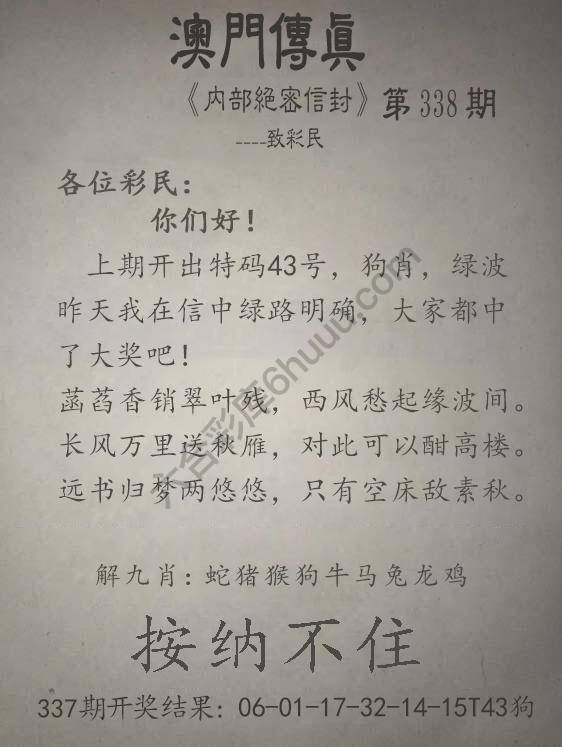 澳門傳眞
《内部絕密信封》第338期
----致彩民
各位彩民：
你们好！
上期开出特码43号，狗肖，绿波
昨天我在信中绿路明确，大家都中
了大奖吧！
菡萏香销翠叶残，西风愁起缘波间。
长风万里送秋雁，对此可以酣高楼。
远书归梦两悠悠，只有空床敌素秋。
六合彩库6huuu.com
解九肖：蛇猪猴狗牛马兔龙鸡
按纳不住
337期开奖结果：06-01-17-32-14-15T43狗